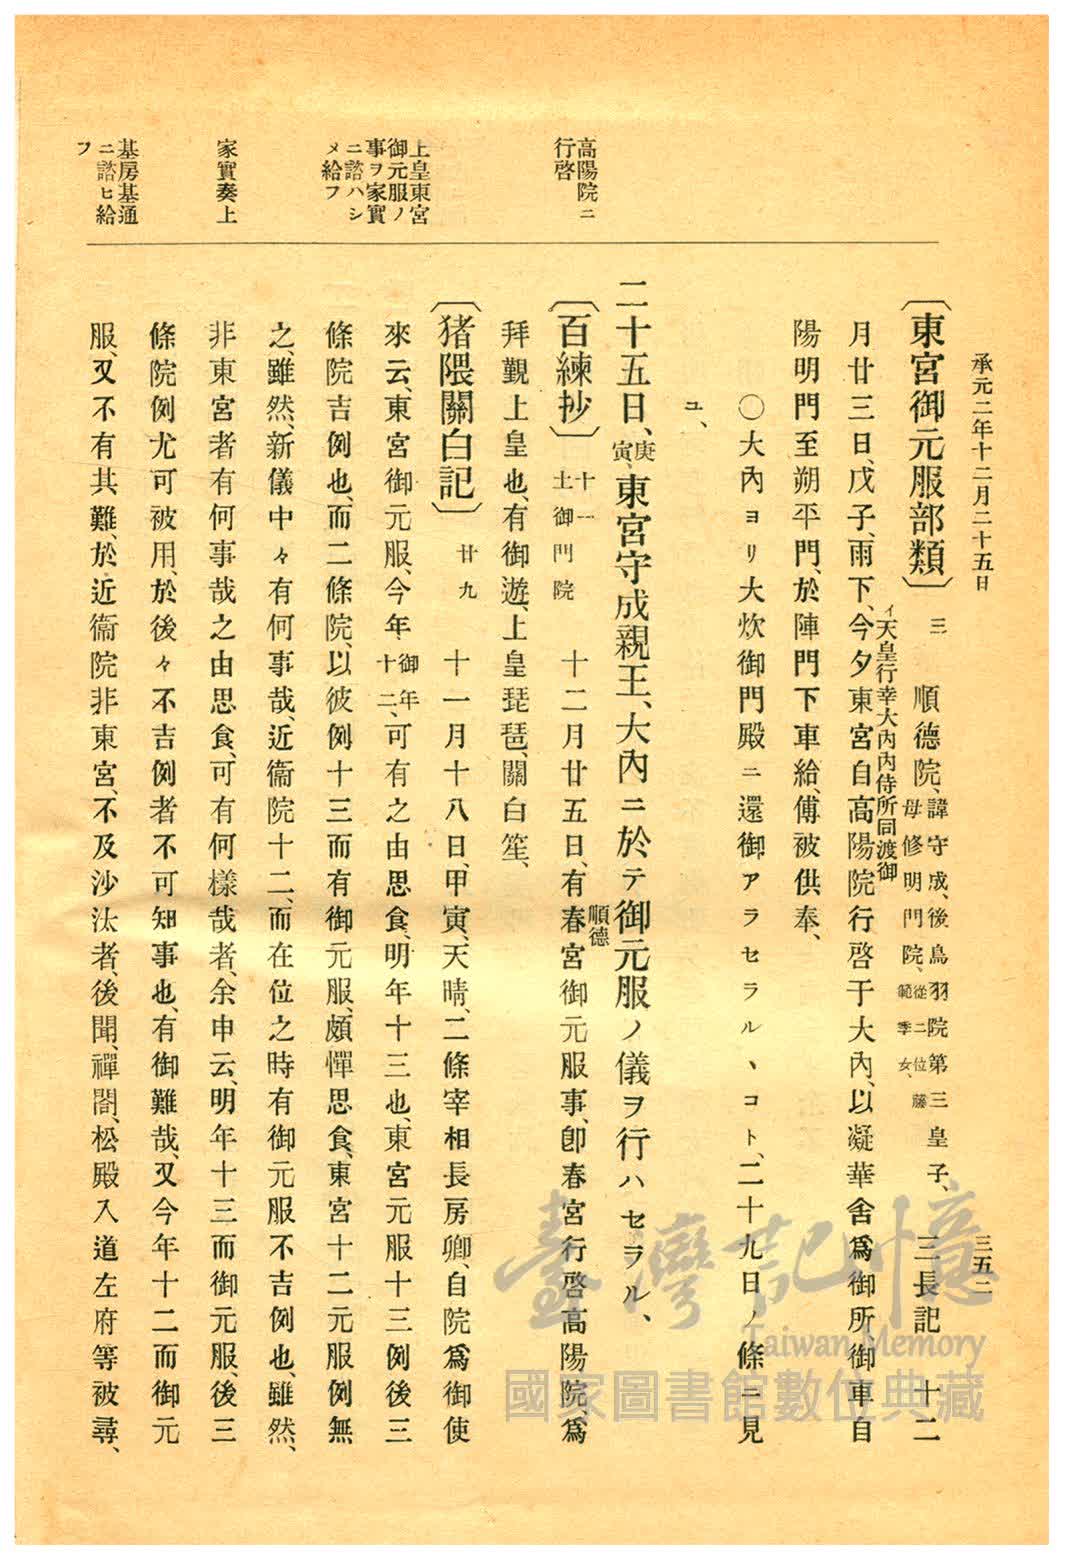 承元二年十二月二十五日
三五二
〔東宮御元服部類〕三 順德院、諱守成、後鳥羽院第三皇子、母修明門院、從二位藤範季女、三長記 十二
月廿三日、戊子、雨下、今夕東宮自高陽院行啓于大內、以凝華舍爲御所、御車自
イ天皇行幸大內內侍所同渡御
陽明門至朔平門、於陣門下車給、傅被供奉、
〇大內ヨリ大炊御門殿ニ還御アラセラル、コト、二十九日ノ條ニ見
ユ、
二十五日、庚寅、東宮守成親王、大內ニ於テ御元服ノ儀ヲ行ハセラル、
順德
〔百練抄〕十一土御門院 十二月廿五日、有春宮御元服事、卽春宮行啓高陽院、爲
拜觐上皇也、有御遊、上皇琵琶、關白笙、
〔猪隈關白記〕廿九 十一月十八日、甲寅、天晴、二條宰相長房卿、自院爲御使
來云、東宮御元服、今年御年十二、可有之由思食、明年十三也、東宮元服十三例後三
條院吉例也、而二條院、以彼例十三而有御元服、頗憚思食、東宮十二元服例無
之、雖然、新儀中々有何事哉、近衞院十二、而在位之時有御元服不吉例也、雖然、
非東宮者有何事哉之由思食、可有何樣哉者、余申云、明年十三而御元服、後三
條院例尤可被用、於後々不吉例者不可知事也、有御難哉、又今年十二而御元
服、又不有其難、於近衞院非東宮、不及沙汰者、後聞、禪閤、松殿入道左府等被尋、
高陽院ニ
行啓
上皇東宮
御元服ノ
事ヲ家實
ニ諮ハシ
メ給フ
家實奏上
基房基通
ニ諮ヒ給
フ
臺灣記憶
Taiwan Memory
國家圖書館數位典藏